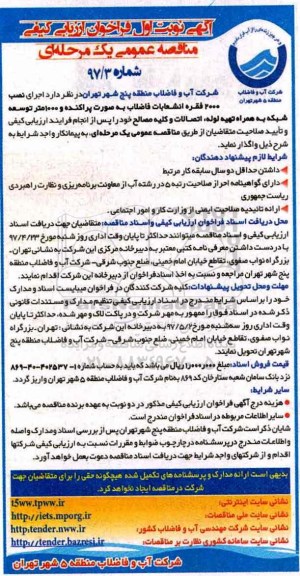 آگهی نوبت اول فراخوان ارزیابی کیفی
مناقصه عمومی یک مرحله‌ای
شماره ۹۷/۳
شرکت آب و فاضلاب
منطقه ۵ شهر تهران
شرکت آب و فاضلاب منطقه پنج شهر تهران در نظر دارد اجرای نصب
۲۰۰۰ فقره انشعابات فاضلاب به صورت پراکنده و ۱۰۰۰متر توسعه
شبکه به همراه تهیه لوله، اتصالات و کلیه مصالح خود را پس از انجام فرایند ارزیابی کیفی
و تأیید صلاحیت متقاضیان از طریق مناقصه عمومی یک مرحله‌ای، به پیمانکار واجد شرایط به
شرح ذیل واگذار نماید.
شرایط لازم پیشنهاد دهندگان:
- داشتن حداقل دو سال سابقه کار مرتبط
- دارای گواهینامه احراز صلاحیت رتبه ۵ در رشته آب از معاونت برنامه‌ریزی و نظارت راهبردی
ریاست جمهوری
- ارائه تائیدیه صلاحیت ایمنی از وزارت کار و امور اجتماعی.
محل دریافت اسناد فراخوان ارزیابی کیفی و اسناد مناقصه: متقاضیان جهت دریافت اسناد
ارزیابی کیفی و اسناد مناقصه میتوانند حداکثر تا پایان وقت اداری روز شنبه مورخ ۹۷/۴/۲۳
با در دست داشتن معرفی نامه کتبی معتبر به دبیرخانه مرکزی این شرکت به نشانی تهران-
بزرگراه نواب صفوی، تقاطع خیابان امام خمینی، ضلع جنوب شرقی- شرکت آب و فاضلاب منطقه
پنج شهر تهران مراجعه و نسبت به اخذ اسناد فراخوان از دبیرخانه این شرکت اقدام نمایند.
مهلت و محل تحویل پیشنهادات: کلیه شرکت کنندگان در فراخوان میبایست اسناد و مدارک
خود را بر اساس شرایط مندرج در اسناد ارزیابی کیفی تنظیم، مدارک و مستندات قانونی
ذکر شده در اسناد فوق را ممهور به مهر شرکت و در پاکت لاک و مهر شده، حداکثر تا پایان
وقت اداری روز سه‌شنبه مورخ ۹۷/۵/۲ به دبیرخانه این شرکت به نشانی: تهران- بزرگراه
نواب صفوی، تقاطع خیابان امام خمینی، ضلع جنوب شرقی- شرکت آب و فاضلاب منطقه پنج
شهر تهران تحویل نمایند.
قیمت فروش اسناد: مبلغ ۱/۰۰۰/۰۰۰ ریال می‌باشد که باید به حساب شماره
نزد بانک سامان شعبه ستارخان کد ۸۶۹ به نام شرکت آب و فاضلاب منطقه ۵ شهر تهران واریز گردد.
سایر شرایط:
- هزینه درج آگهی فراخوان ارزیابی کیفی مذکور در دو نوبت به عهده برنده مناقصه می‌باشد.
- سایر اطلاعات مربوطه در اسناد فراخوان مندرج است.
شایان ذکر است شرکت آب و فاضلاب منطقه پنج شهر تهران پس از بررسی اسناد و مدارک واصله
و اطلاعات مندرج در پرسشنامه در چارچوب ضوابط و مقررات نسبت به ارزیابی کیفی شرکتها
اقدام و از شرکتهای واجد شرایط جهت دریافت اسناد مناقصه دعوت بعمل خواهد آورد.
بدیهی است ارائه مدارک و پرسشنامه‌های تکمیل شده هیچگونه حقی را برای متقاضیان جهت
شرکت در مناقصه ایجاد نخواهد کرد.
نشانی سایت اینترنتی: t5ww.tpww.ir
نشانی سایت ملی مناقصات: http://iets.mporg.ir
نشانی سایت شرکت مهندسی آب و فاضلاب کشور: http:tender.nww.ir
نشانی سایت سامانه کشوری نظارت بر مناقصات: http://tender.bazresi.ir
شرکت آب و فاضلاب منطقه ۵ شهر تهران